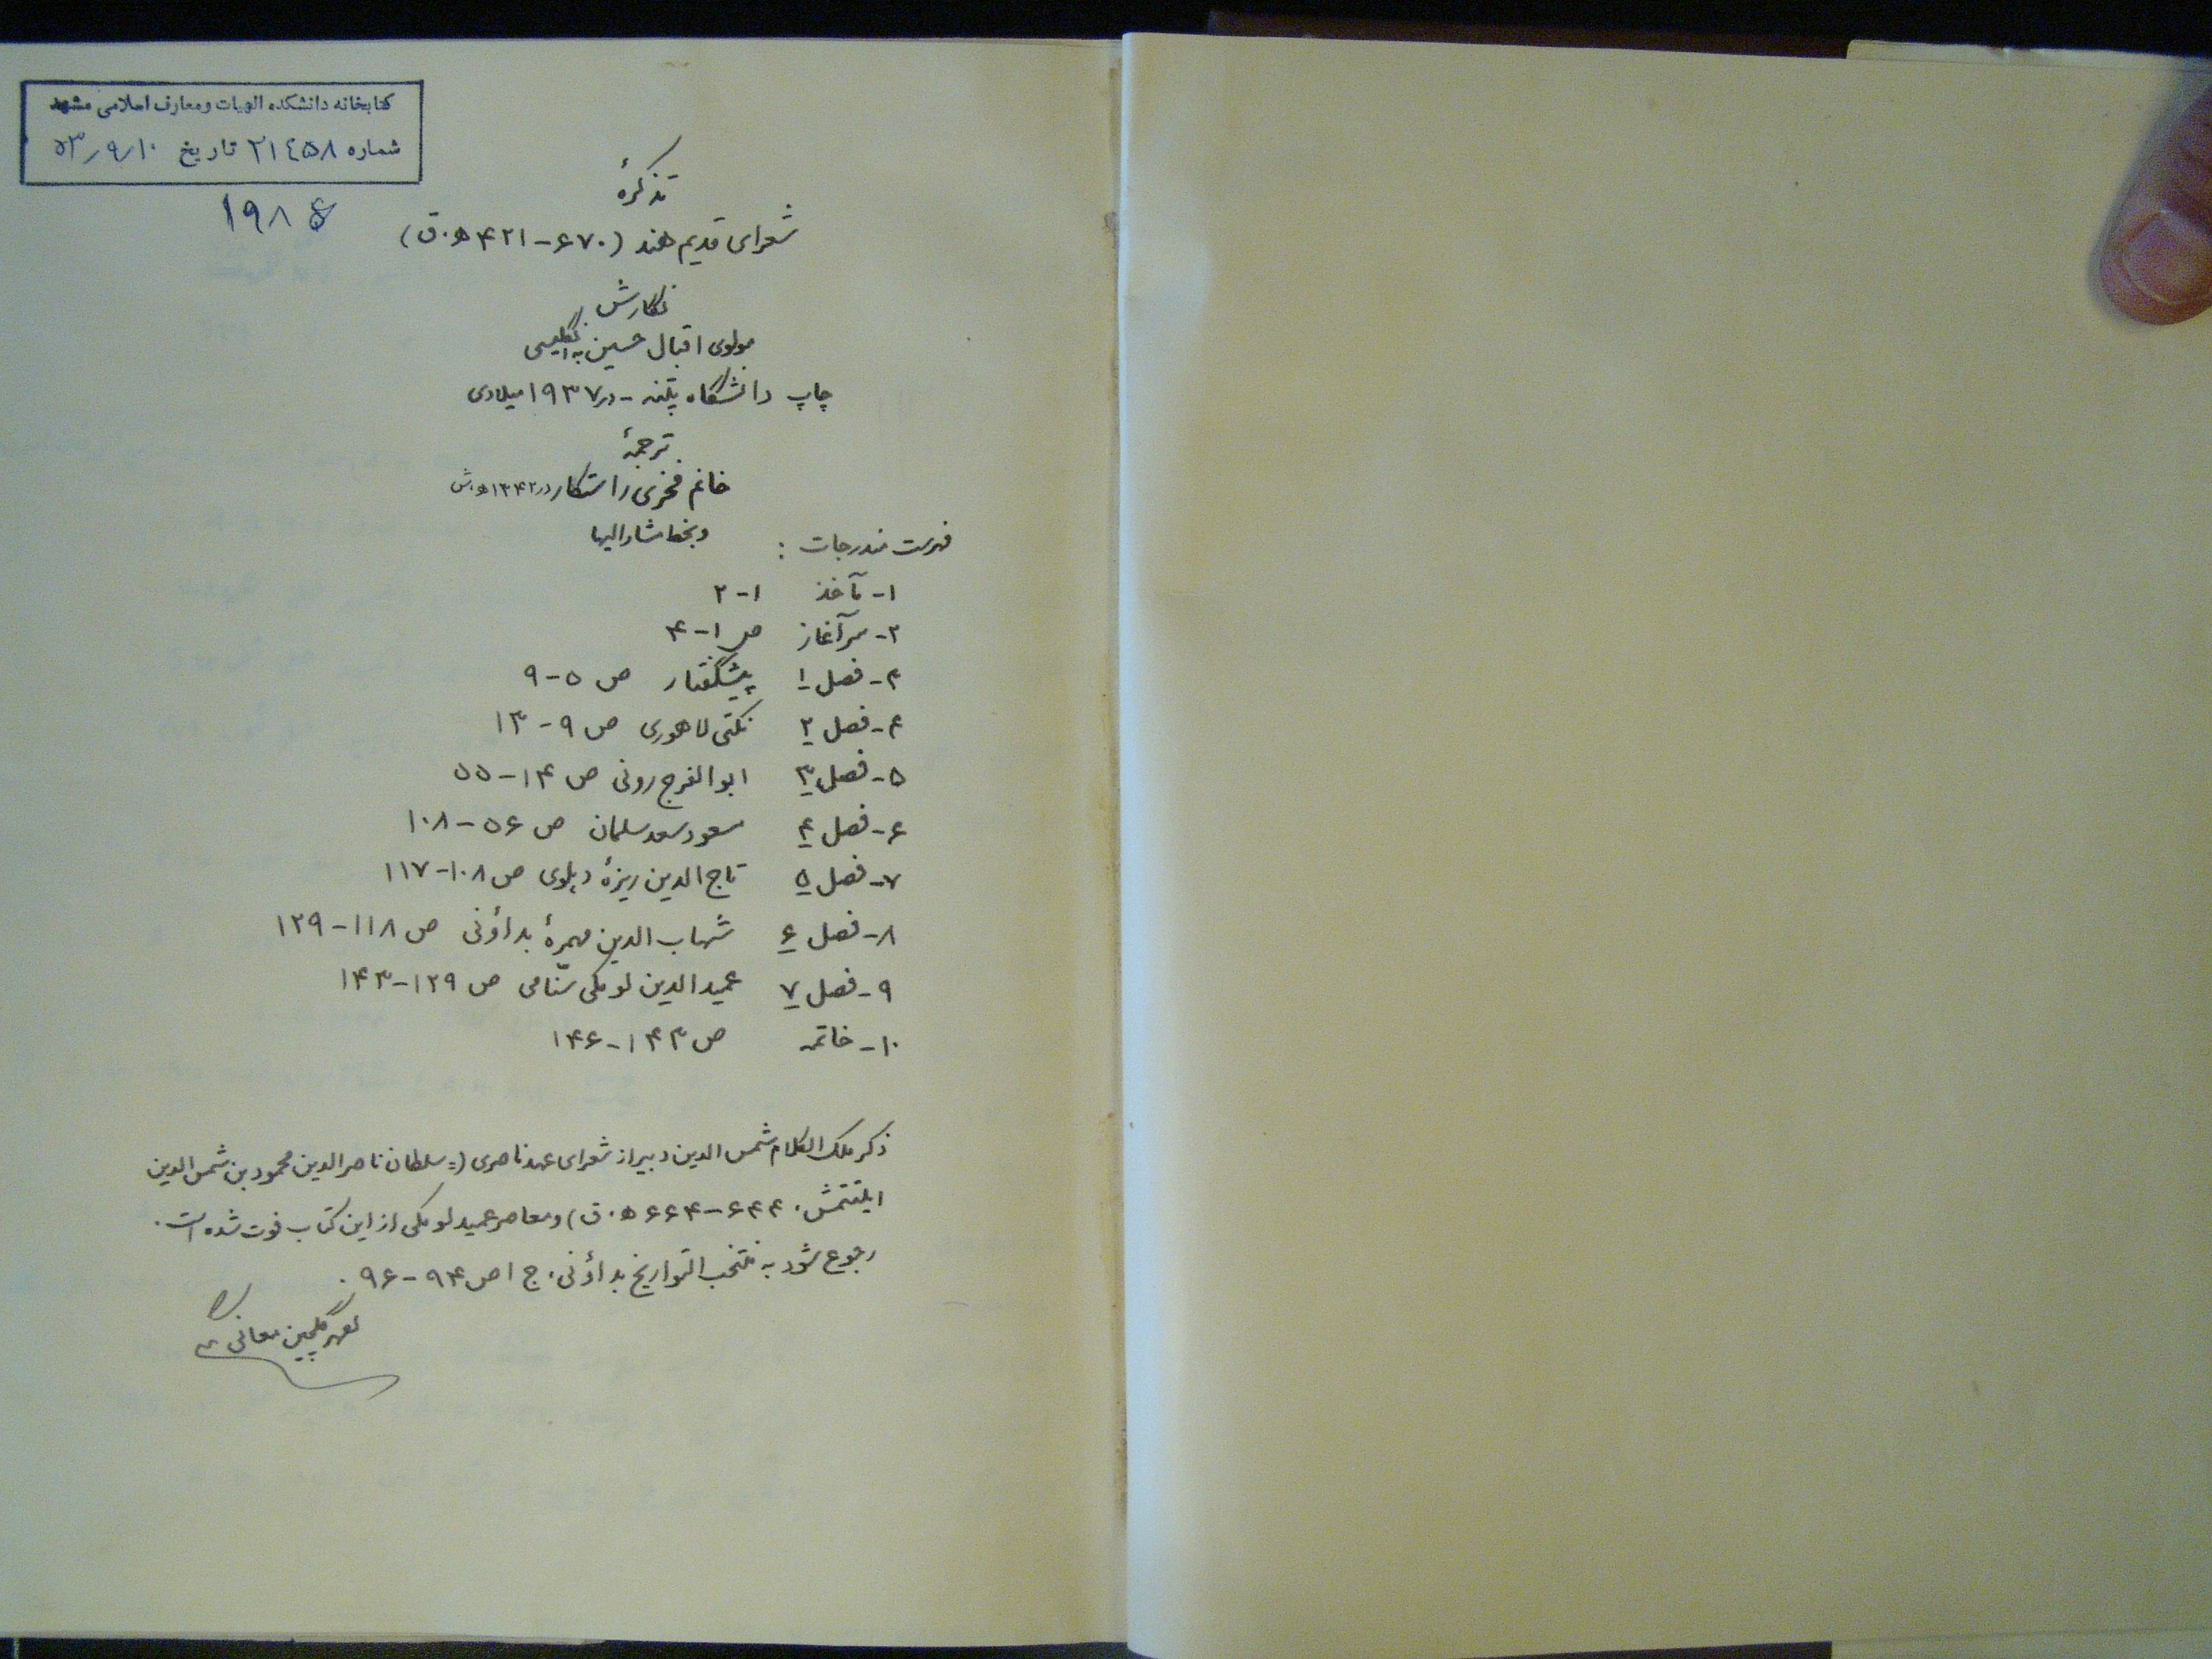 کتابخانه دانشکده الهیات و معارف اسلامی مشهد
شماره ۲۱٤۵۸ تاریخ ۵۳٫۹٫۱۰
تذکرهٔ
شعرای قدیم هند (۶۷۰-۴۲۱ ه.ق)
نگارش
مولوی اقبال حسین به انگلیسی
چاپ دانشگاه پتنه - در ۱۹۳۷ میلادی
ترجمهٔ
خانم فخری راستکار در ۱۳۴۲ ه.ش
و بخط مشارالیها
فهرست مندرجات :
۱- مآخذ ۱-۲
۲- سرآغاز ص ۱-۴
۳- فصل ۱ پیشگفتار ص ۵-۹
۴- فصل ۲ نکتی لاهوری ص ۹-۱۳
۵- فصل ۳ ابوالفرج رونی ص ۱۴-۵۵
۶- فصل ۴ مسعود سعد سلمان ص ۵۶-۱۰۸
۷- فصل ۵ تاج الدین ریزهٔ دهلوی ص ۱۰۸-۱۱۷
۸- فصل ۶ شهاب الدین مهمرهٔ بداؤنی ص ۱۱۸-۱۲۹
۹- فصل ۷ عمید الدین لومکی سنّامی ص ۱۲۹-۱۴۳
۱۰- خاتمه ص ۱۴۳-۱۴۶
ذکر ملک الکلام شمس الدین دبیر از شعرای عهد ناصری (= سلطان ناصر الدین محمود بن شمس الدین
ایلتتمش. ۶۴۴-۶۶۴ ه.ق) و معاصر عمید لومکی از این کتاب فوت شده است.
رجوع شود به منتخب التواریخ بداؤنی. ج ۱ ص ۹۴-۹۶.
گلچین معانی